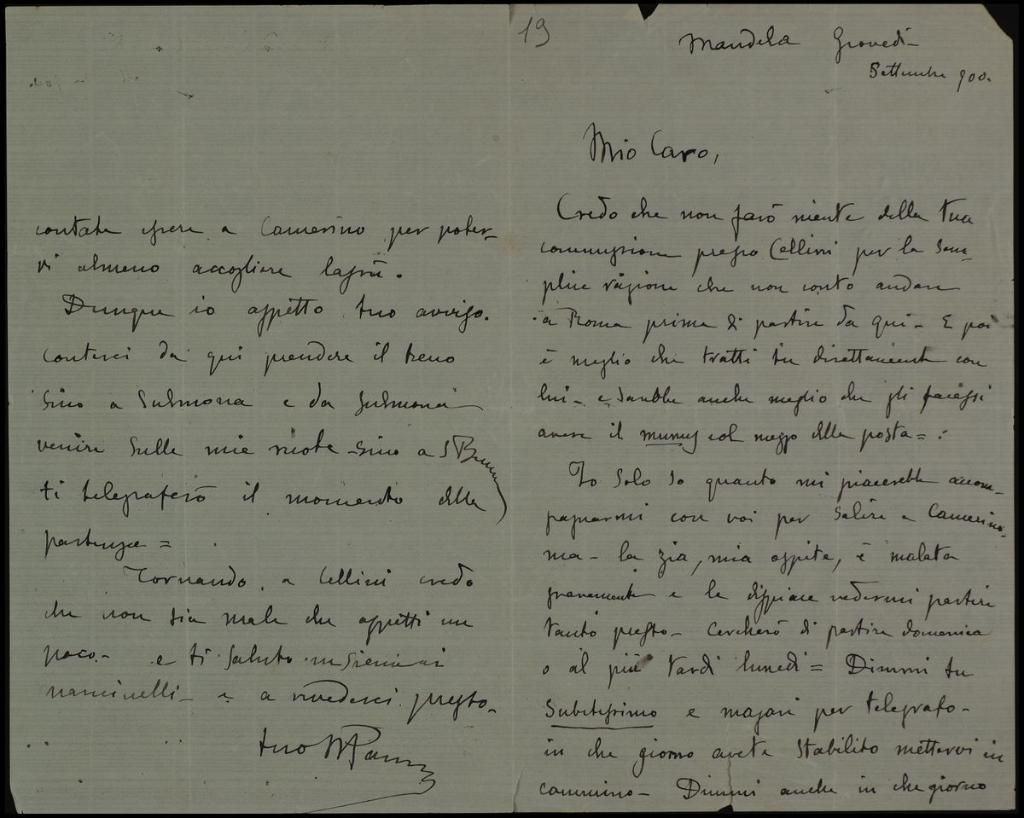 19
Mandela Giovedì
Settembre 900.
Mio Caro,
Credo che non farò niente della tua
commissione presso Cellini per la sem-
plice ragione che non conto andare
a Roma prima di partire da qui - E poi
è meglio che tratti tu direttamente con
lui - e sarebbe anche meglio che gli facessi
avere il munus col mezzo della posta = :
Io solo so quanto mi piacerebbe accom-
pagnarmi con voi per salire a Camerino.
ma - la zia, mia ospite, è malata
gravemente e le dispiace vedermi partire
tanto presto - Cercherò di partire domenica
o al più tardi lunedì = Dimmi tu
subitissimo e magari per telegrafo -
in che giorno avete stabilito mettervi in
cammino - Dimmi anche in che giorno
contate essere a Camerino per poter-
vi almeno accogliere lassù.
Dunque io aspetto tuo avviso.
Conterei da qui prendere il treno
sino a Sulmona e da Sulmona
venire sulle mie ruote - sino a S
ti telegraferò il momento della
partenza =
Tornando a Cellini credo
che non sia male che aspetti un
poco - e ti saluto insieme ai
nancinelli - e a rivederci presto -
tuo